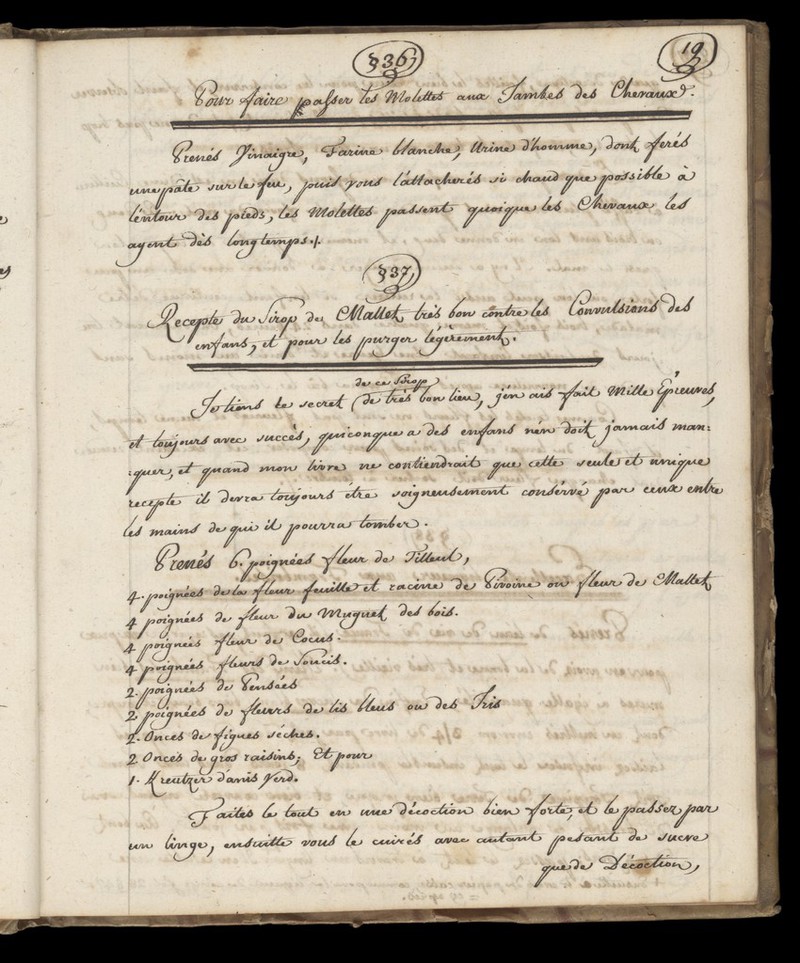 §36,
19
Pour faire passer les Molettes aux Jambes des Chevaux.
Prenés Vinaigre, Farine blanche, Urine d'homme, dont ferés
une pâte sur le feu, puis vous l'attacherés si chaud que possible à
l'éntour des pieds, les Molettes passent quoique les Chevaux les
ayent dès longtemps./.
§37,
Recepte du Sirop de Mallet très bon contre les Convulsions des
enfans, et pour les purger légèrement.
de ce Sirop
Je tiens le secret de très bon lieu, j'en ais fait Mille Épreuves,
et toujours avec succès, quiconque a des enfans n'en doit jamais man=
=quer, et quand mon livre ne contiendrait que cette seule et unique
recepte il devra toujours être soigneusement consérvé par ceux entre
les mains de qui il pourra tomber.
Prenés 6. poignées fleur de Tilleul,
4. poignées de la fleur feuille et racine de Pivoine ou fleur de Mallet
4 poignées de fleur du Muguet des bois.
4 poignées fleur de Cocus.
4 poignées fleurs de Soucis.
2. poignées de Pensées
2 poignées de fleurs de lis bleus ou des Iris
2. Onces de figues séches.
2 Onces de gros raisins; Et pour
1. Kreutzer d'anis Verd.
Faites le tout en une décoction bien forte, et le passer par
un linge, ensuitte vous le cuirés avec autant pesant de sucre
que de Décoction,